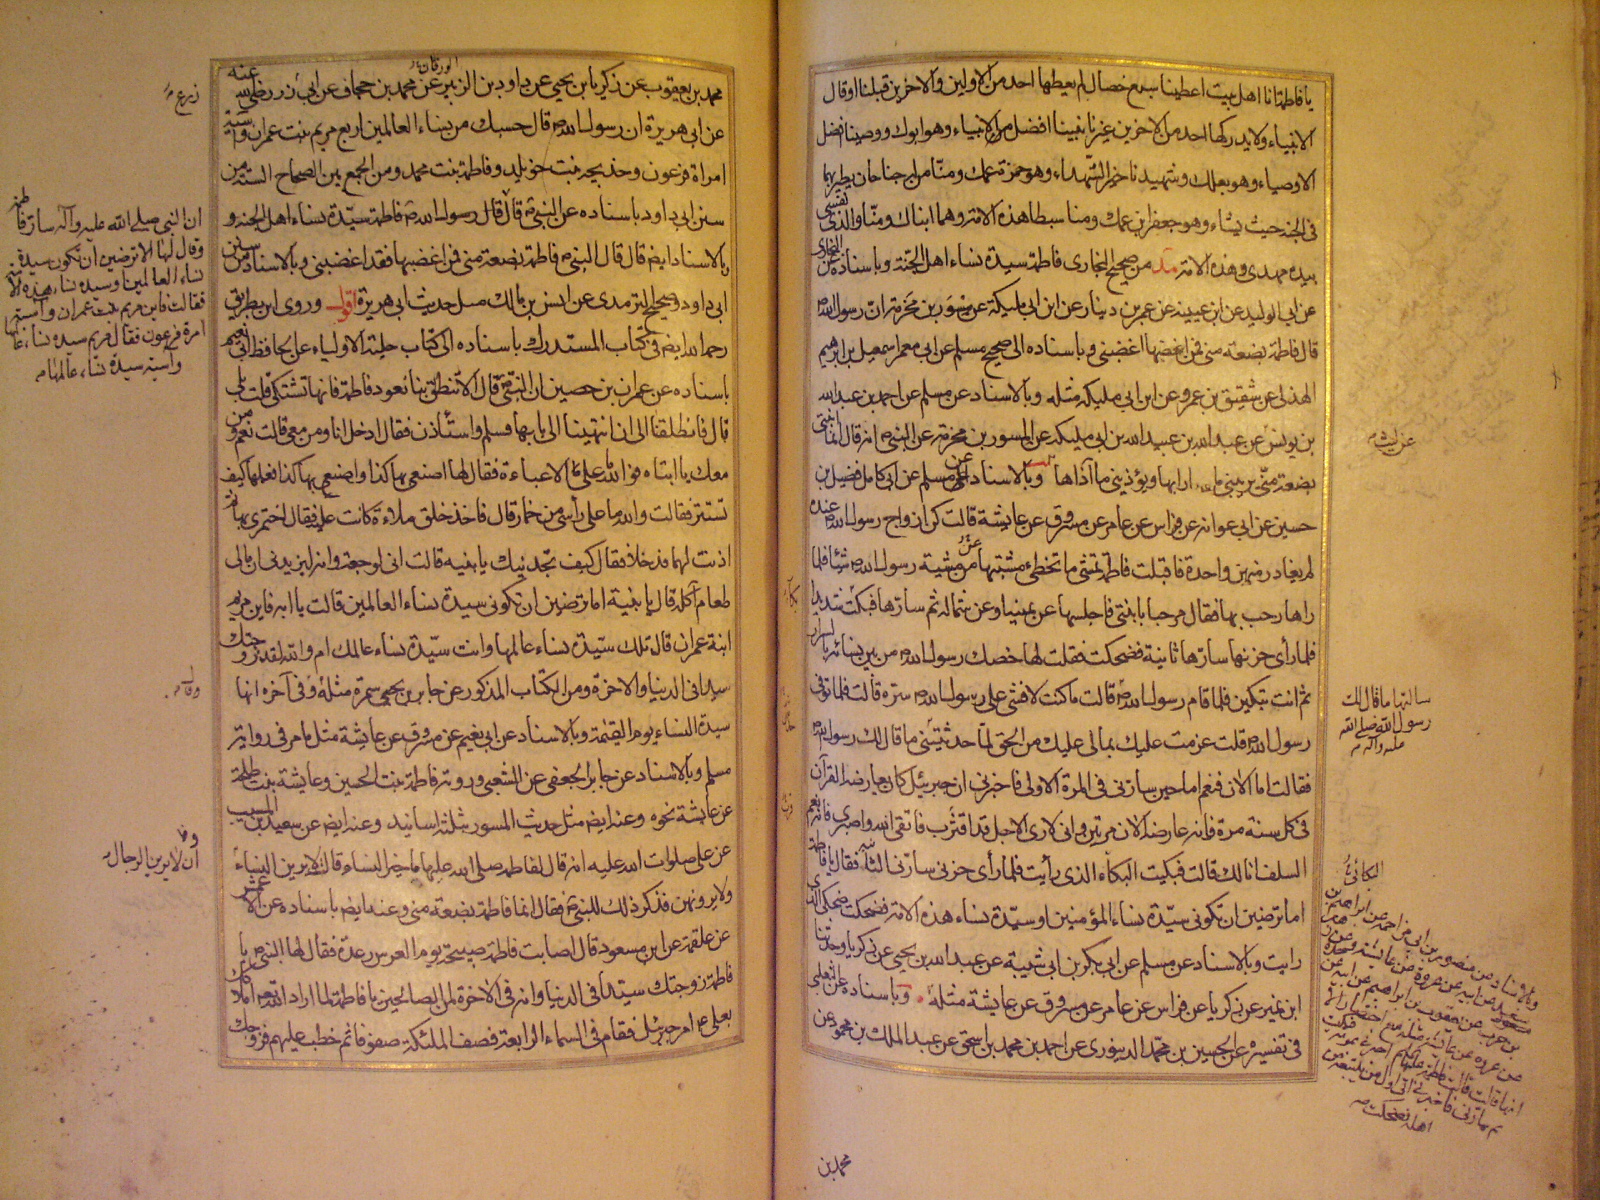 يا فاطمة انا اهل بيت اعطينا سبع خصال لم يعطها احد من الاولين والاخرين قبلنا او قال
الانبياء ولا يدركها احد من الاخرين غيرنا نبينا افضل الانبياء وهو ابوك ووصينا افضل
الاوصياء وهو بعلك وشهيدنا خير الشهداء وهو حمزة عمك ومنا من له جناحان يطير بهما
فى الجنة حيث يشاء وهو جعفر ابن عمك ومنا سبطا هذه الامة وهما ابناك ومنا والذى نفسى
بيده مهدى هذه الامة مد من صحيح البخارى فاطمة سيدة نساء اهل الجنة وباسناده عن البخارى
عن ابى الوليد عن ابن عيينة عن عمر بن دينار عن ابن ابى مليكة عن مسور بن مخرمة ان رسول الله
قال فاطمة بضعة منى فمن اغضبها اغضبنى وباسناده الى صحيح مسلم عن ابى معمر اسمعيل بن ابرهيم
الهذلى عن شقيق بن عمرو عن ابن ابى مليكة مثله وبالاسناد عن مسلم عن احمد بن عبد الله
بن يونس عن عبد الله بن عبيد الله بن ابى مليكة عن المسور بن مخرمة عن النبى انه قال انما ابنتى
بضعة منى يريبنى ما ارابها ويؤذينى ما آذاها وبالاسناد عن مسلم عن ابى كامل فضيل بن
حسين عن ابى عوانة عن فراس عن عامر عن مسروق عن عايشة قالت كن ازواج رسول الله عنده
لم يغادر منهن واحدة فاقبلت فاطمة تمشى ما تخطى مشيتها من مشية رسول الله شيئا فلما
راها رحب بها فقال مرحبا بابنتى فاجلسها عن يمينه او عن شماله ثم سارها فبكت شديدا
فلما رأى حزنها سارها ثانية فضحكت فقلت لها خصك رسول الله من بين نسائه بالسرار
ثم انت تبكين فلما قام رسول الله قالت ما كنت لافشى على رسول الله سره قالت فلما توفى
رسول الله قلت عزمت عليك بما لى عليك من الحق لما حدثتينى ما قال لك رسول الله
فقالت اما الان فنعم اما حين سارنى فى المرة الاولى فاخبرنى ان جبرئيل كان يعارضه القرآن
فى كل سنة مرة فانه عارضه الان مرتين وانى لا ارى الاجل قد اقترب فاتقى الله واصبرى فانه نعم
السلف انا لك قالت فبكيت البكاء الذى رأيت فلما رأى حزنى سارنى الثانية فقال يا فاطمة
اما ترضين ان تكونى سيدة نساء المؤمنين او سيدة نساء هذه الامة فضحكت ضحكى الذى
رايت وبالاسناد عن مسلم عن ابى بكر بن ابى شيبة عن عبد الله بن يحيى عن زكريا وحدثنا
ابن نمير عن زكريا عن فراس عن عامر عن مسروق عن عايشة مثله وباسناده عن الثعلبى
فى تفسيره عن الحسين بن محمد الدينورى عن احمد بن محمد بن اسحق عن عبد الملك بن محمود عن
عن ليث
سالتها ما قال لك
رسول الله صلى الله
عليه وآله
محمد بن
الورقان
محمد بن يعقوب عن زكريا بن يحيى عن داود بن الزبير عن محمد بن حجاف عن ابى زر رضى الله عنه
عن ابى هريرة ان رسول الله قال حسبك من نساء العالمين اربع مريم بنت عمران وآسية
امراة فرعون وخديجة بنت خويلد وفاطمة بنت محمد ومن الجمع بين الصحاح الستة من
سنن ابى داود باسناده عن النبى قال قال رسول الله فاطمة سيدة نساء اهل الجنة و
بالاسناد ايضا قال قال النبى فاطمة بضعة منى فمن اغضبها فقد اغضبنى وبالاسناد من سنن
ابى داود وصحيح الترمذى عن انس بن مالك مثل حديث ابى هريرة اقول وروى ابن بطريق
رحمه الله ايضا فى كتاب المستدرك باسناده الى كتاب حلية الاولياء عن الحافظ ابى نعيم
باسناده عن عمران بن حصين ان النبى قال الا تنطلق بنا نعود فاطمة فانها تشتكى قلت بلى
قال فانطلقنا الى ان انتهينا الى بابها فسلم واستأذن فقال ادخل انا ومن معى قالت نعم ومن
معك يا ابتاه فوالله ما على الا عباءة فقال لها اصنعى بها كذا واصنعى بها كذا فعلمها كيف
تستتر فقالت والله ما على رأسى من خمار قال فاخذ خلق ملاءة كانت عليه فقال اختمرى بها ثم
اذنت لهما فدخلا فقال كيف تجدينك يا بنية قالت انى لوجعة وانه ليزيدنى ان مالى
طعام آكله قال يا بنية اما ترضين ان تكونى سيدة نساء العالمين قالت يا ابه فاين مريم
ابنة عمران قال تلك سيدة نساء عالمها وانت سيدة نساء عالمك ام والله لقد زوجتك
سيدا فى الدنيا والاخرة ومن الكتاب المذكور عن جابر بن سمرة مثله وفى آخره انها
سيدة النساء يوم القيمة وبالاسناد عن ابى نعيم عن مسروق عن عايشة مثل ما مر فى رواية
مسلم وبالاسناد عن جابر الجعفى عن الشعبى وروته فاطمة بنت الحسين وعايشة بنت طلحة
عن عايشة نحوه وعنه ايضا مثل حديث المسور بثلثة اسانيد وعنه ايضا عن سعيد بن المسيب
عن على صلوات الله عليه انه قال لفاطمة صلى الله عليها ما خير النساء قالت لا يرين النساء
ولا يرونهن فذكر ذلك للنبى فقال انما فاطمة بضعة منى وعنه ايضا باسناده عن الاعمش
عن علقمة عن ابن مسعود قال اصابت فاطمة صبيحة يوم العرس رعدة فقال لها النبى يا
فاطمة زوجتك سيدا فى الدنيا وانه فى الاخرة لمن الصالحين يا فاطمة لما اراد الله ان املكك
بعلى امر جبرئيل فقام فى السماء الرابعة فصف الملئكة صفوفا ثم خطب عليهم فزوجك
ان النبى صلى الله عليه وآله سار فاطمة
وقال لها الا ترضين ان تكون سيدة
نساء العالمين او سيدة نساء هذه الامة
فقالت فاين مريم بنت عمران وآسية
امرة فرعون فقال مريم سيدة نساء عالمها
وآسية سيدة نساء عالمها
ان لا يرين الرجال